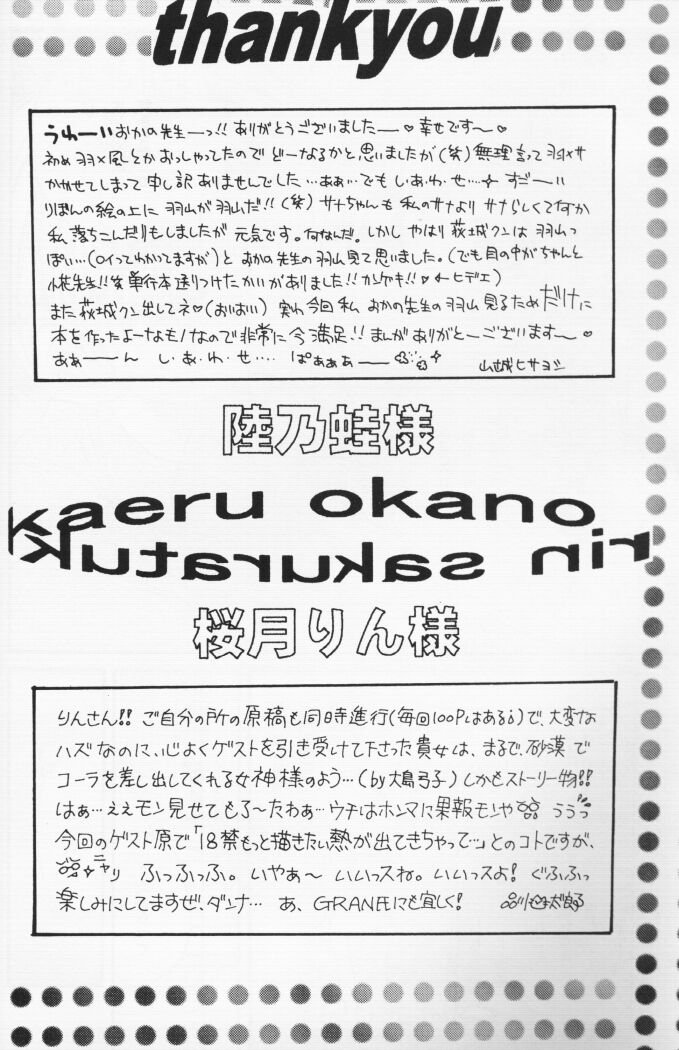 thankyou
うわーいおかの先生ーっ!! ありがとうございましたー♡ 幸せです〜♡
初め羽×風とかおっしゃってたのでどーなるかと思いましたが(笑)無理言って羽×サ
かかせてしまって申し訳ありませんでした…ああ…でもしあ・わ・せ…✧ すごーい
りぼんの絵の上に羽山が羽山だ!!(笑) サナちゃんも私のサナよりサナらしくてなか
私落ちこんだりもしましたが元気です。何なんだ。しかしやはり荻城クンは羽山っ
ぽい…(ロイってわかってますが)とおかの先生の羽山見て思いました。(でも目の中がちゃんと
先生!!笑 単行本送りつけたかいがありました!!カンゲキ!!♡←ヒデエ)
また荻城クン出してネ♡(おいおい) 実わ今回私おかの先生の羽山見るためだけに
本を作ったよーなもんなので非常に今満足!! まんがありがとーございます〜♡
ああーーん し・あ・わ・せ…. ぱあああー
山城ヒサヨシ
陸乃蛙様
kaeru okano
rin sakuratuk
桜月りん様
りんさん!! ご自分の所の原稿も同時進行(毎回100Pはある¿)で、大変な
ハズなのに、心よくゲストを引き受けて下さった貴女は、まるで、砂漠で
コーラを差し出してくれる女神様のよう…(by大島弓子)しかもストーリー物!!
はぁ…ええモン見せてもろ〜たわぁ…ウチはホンマに果報モンや うぅっ
今回のゲスト原で「18禁もっと描きたい熱が出てきちゃって…」とのコトですが、
ニヤリ ふっふっふ。いやぁ〜いいっスね。いいっスよ! ぐふふっ
楽しみにしてますぜ、ダンナ… あ、GRANEにも宜しく!